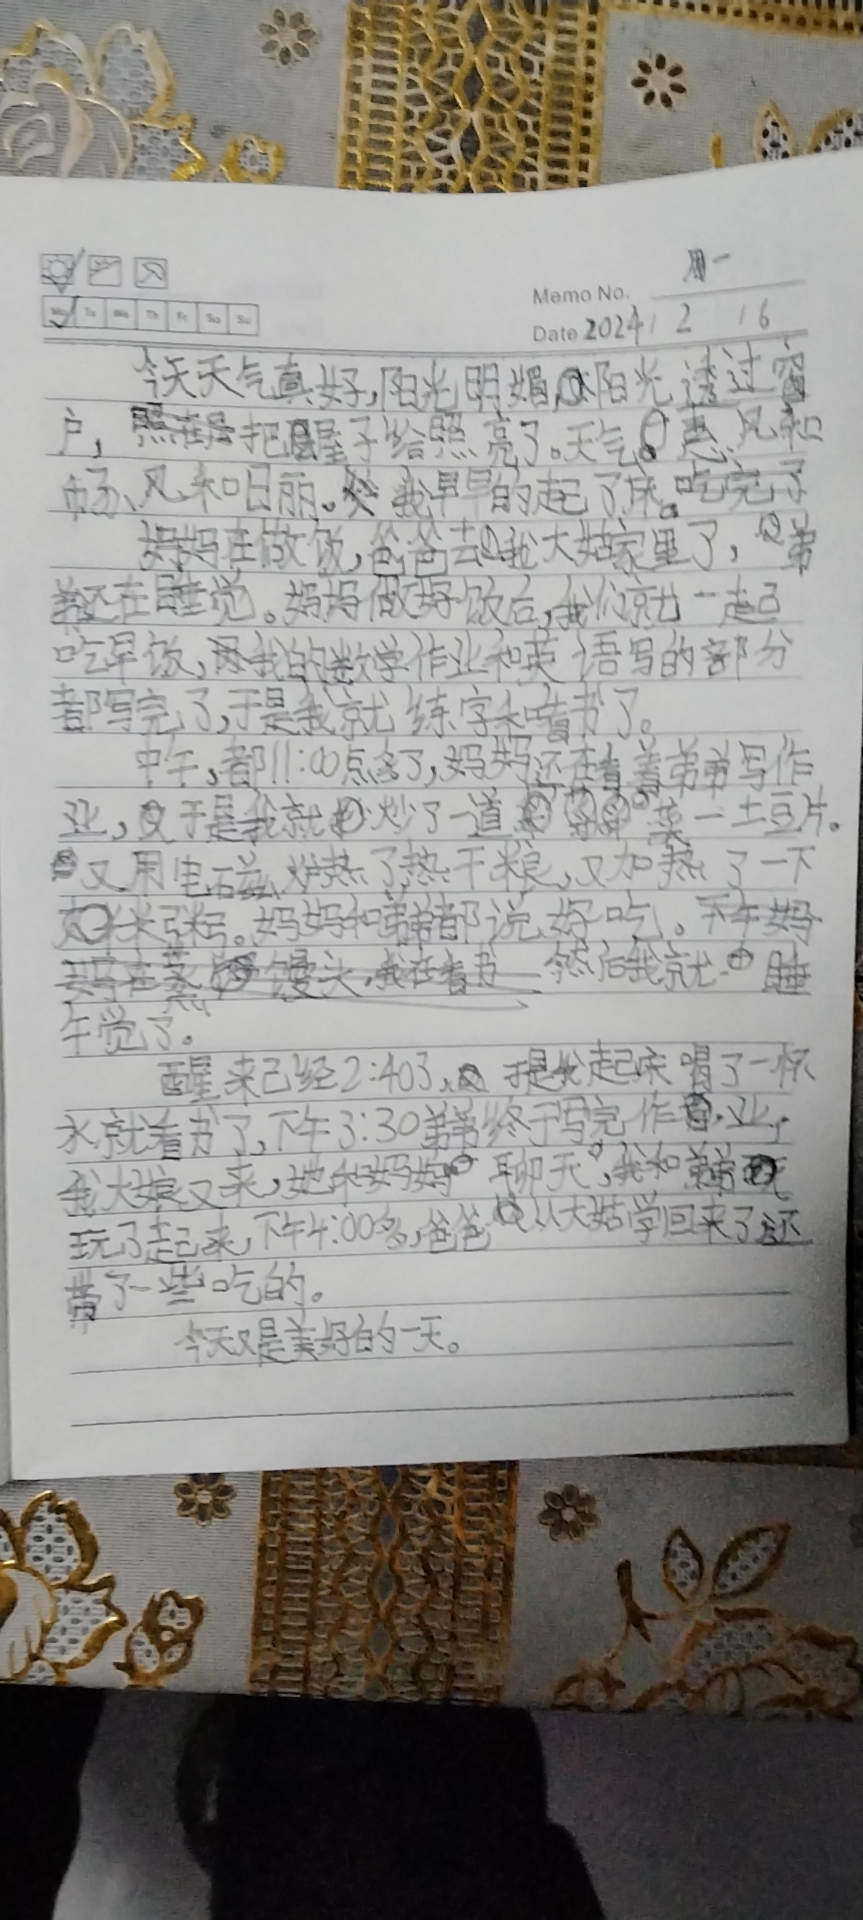 周一
Memo No.
Date 2024 / 2 / 6
今天天气真好,阳光明媚,阳光透过窗
户,把屋子给照亮了。天气惠风和
畅、风和日丽。我早早的起了床。吃完了
妈妈在做饭,爸爸去我大姑家里了,弟
弟还在睡觉。妈妈做好饭后,我们就一起
吃早饭,我的数学作业和英语写的部分
都写完了,于是我就练字和看书了。
中午,都11:00点多了,妈妈还在看着弟弟写作
业,于是我就炒了一道菜一土豆片。
又用电磁炉热了热干粮,又加热了一下
米粥。妈妈和弟弟都说好吃。下午妈
妈在蒸馒头,我在看书 然后我就睡
午觉了。
醒来已经2:40了,于是我起床喝了一杯
水就看书了,下午3:30弟弟终于写完作业,
我大娘又来,她和妈妈聊天,我和弟弟
玩了起来,下午4:00多,爸爸从大姑学回来了还
带了一些吃的。
今天又是美好的一天。